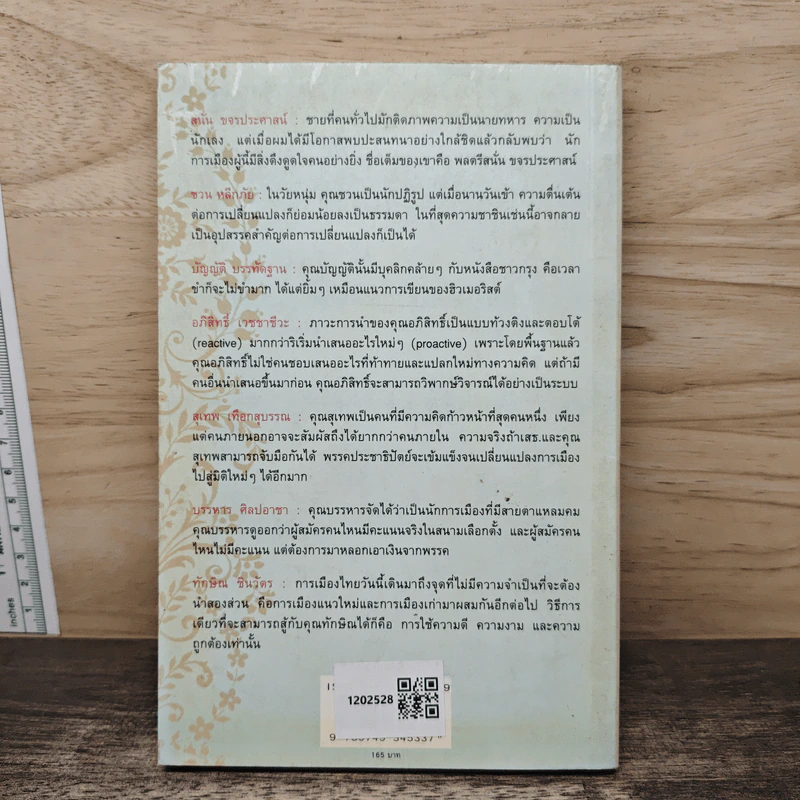 สนั่น ขจรประศาสน์ : ชายที่คนทั่วไปมักติดภาพความเป็นนายทหาร ความเป็น
นักเลง แต่เมื่อผมได้มีโอกาสพบปะสนทนาอย่างใกล้ชิดแล้วกลับพบว่า นัก
การเมืองผู้นี้มีสิ่งดึงดูดใจคนอย่างยิ่ง ชื่อเต็มของเขาคือ พลตรีสนั่น ขจรประศาสน์
ชวน หลีกภัย : ในวัยหนุ่ม คุณชวนเป็นนักปฏิรูป แต่เมื่อนานวันเข้า ความตื่นเต้น
ต่อการเปลี่ยนแปลงก็ย่อมน้อยลงเป็นธรรมดา ในที่สุดความชาชินเช่นนี้อาจกลาย
เป็นอุปสรรคสำคัญต่อการเปลี่ยนแปลงก็เป็นได้
บัญญัติ บรรทัดฐาน : คุณบัญญัตินั้นมีบุคลิกคล้ายๆ กับหนังสือชาวกรุง คือเวลา
ขำก็จะไม่ขำมาก ได้แต่ยิ้มๆ เหมือนแนวการเขียนของฮิวเมอริสต์
อภิสิทธิ์ เวชชาชีวะ : ภาวะการนำของคุณอภิสิทธิ์เป็นแบบท้วงติงและตอบโต้
(reactive) มากกว่าริเริ่มนำเสนออะไรใหม่ๆ (proactive) เพราะโดยพื้นฐานแล้ว
คุณอภิสิทธิ์ไม่ใช่คนชอบเสนออะไรที่ท้าทายและแปลกใหม่ทางความคิด แต่ถ้ามี
คนอื่นนำเสนอขึ้นมาก่อน คุณอภิสิทธิ์จะสามารถวิพากษ์วิจารณ์ได้อย่างเป็นระบบ
สุเทพ เทือกสุบรรณ : คุณสุเทพเป็นคนที่มีความคิดก้าวหน้าที่สุดคนหนึ่ง เพียง
แต่คนภายนอกอาจจะสัมผัสถึงได้ยากกว่าคนภายใน ความจริงถ้าเสธ.และคุณ
สุเทพสามารถจับมือกันได้ พรรคประชาธิปัตย์จะเข้มแข็งจนเปลี่ยนแปลงการเมือง
ไปสู่มิติใหม่ๆ ได้อีกมาก
บรรหาร ศิลปอาชา : คุณบรรหารจัดได้ว่าเป็นนักการเมืองที่มีสายตาแหลมคม
คุณบรรหารดูออกว่าผู้สมัครคนไหนมีคะแนนจริงในสนามเลือกตั้ง และผู้สมัครคน
ไหนไม่มีคะแนน แต่ต้องการมาหลอกเอาเงินจากพรรค
ทักษิณ ชินวัตร : การเมืองไทยวันนี้เดินมาถึงจุดที่ไม่มีความจำเป็นที่จะต้อง
นำสองส่วน คือการเมืองแนวใหม่และการเมืองเก่ามาผสมกันอีกต่อไป วิธีการ
เดียวที่จะสามารถสู้กับคุณทักษิณได้ก็คือ การใช้ความดี ความงาม และความ
ถูกต้องเท่านั้น
1202528
165 บาท
inches